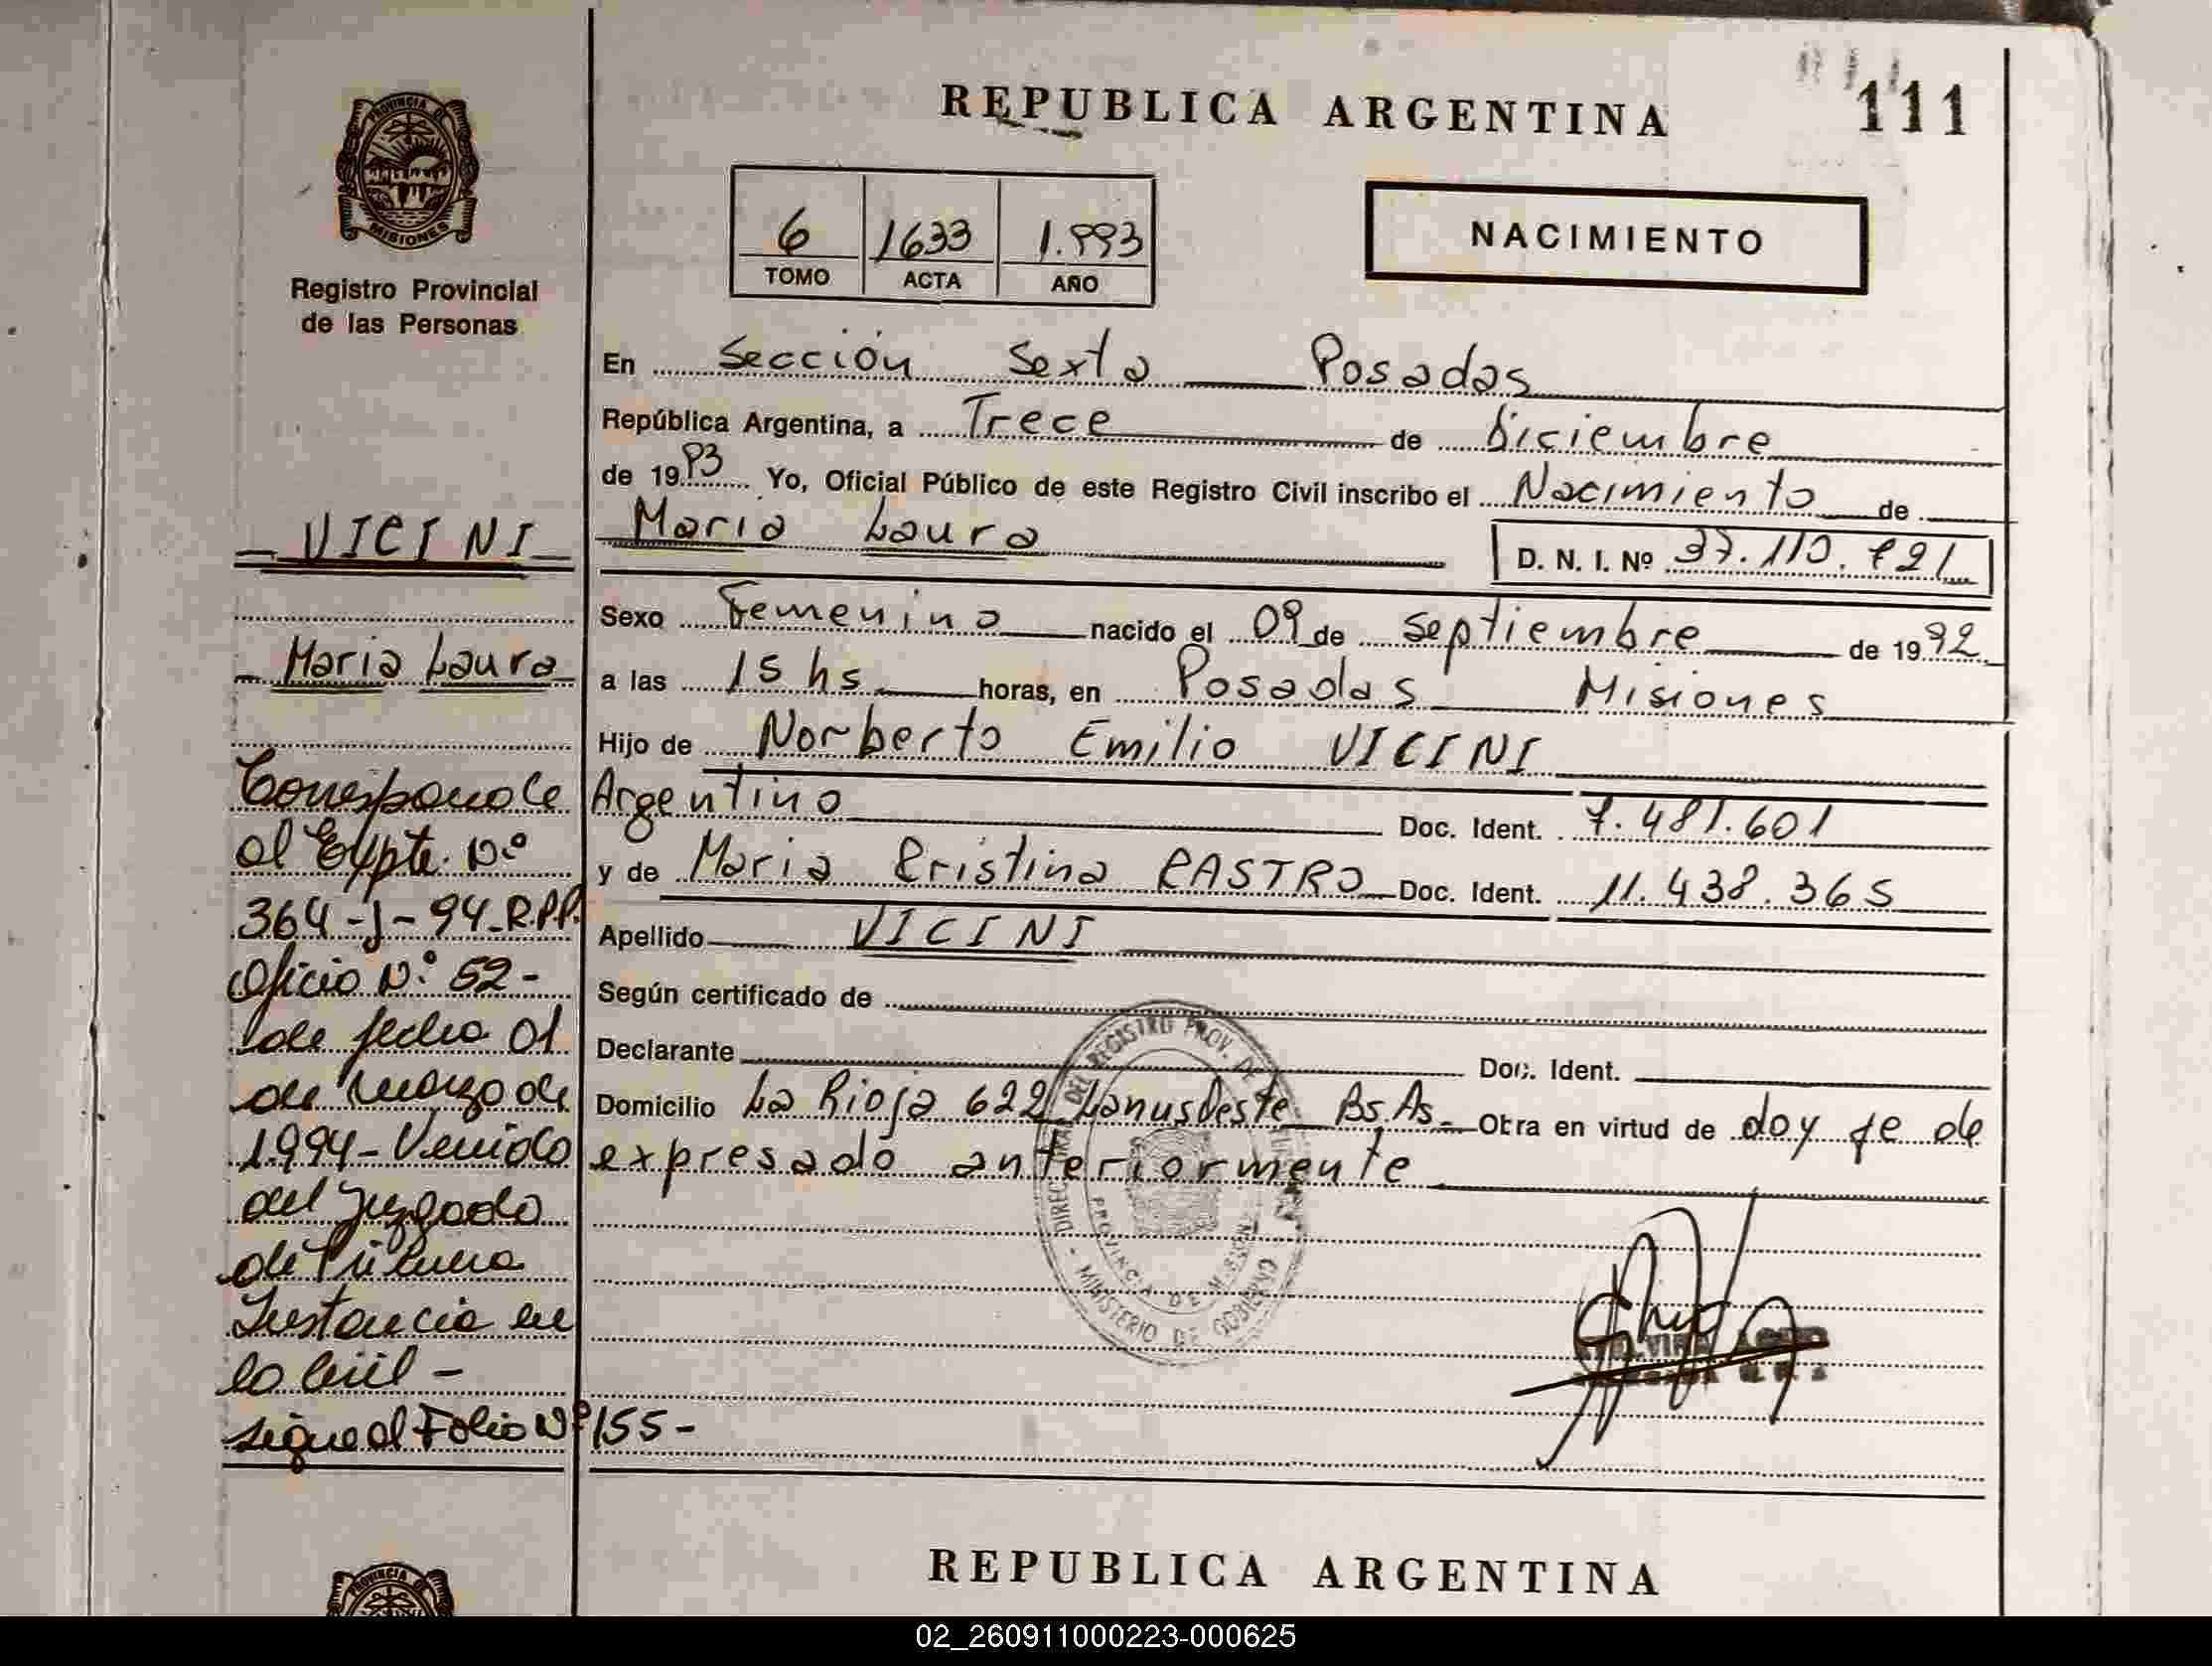 REPUBLICA ARGENTINA
111
PROVINCIA DE
MISIONES
Registro Provincial
de las Personas
6 1633 1.993
TOMO ACTA AÑO
NACIMIENTO
En Sección Sexta Posadas
República Argentina, a Trece de Diciembre
de 1993 Yo, Oficial Público de este Registro Civil inscribo el Nacimiento de
Maria Laura
D. N. I. Nº 37.110.721
Sexo Femenino nacido el 09 de Septiembre de 1992
a las 15 hs horas, en Posadas Misiones
Hijo de Norberto Emilio VICINI
Argentino Doc. Ident. 7.481.601
y de Maria Cristina CASTRO Doc. Ident. 11.438.365
Apellido VICINI
Según certificado de
Declarante Doc. Ident.
Domicilio La Rioja 622 Lanus Oeste Bs.As. Otra en virtud de doy fe de
expresado anteriormente
VICINI
Maria Laura
Corresponde
al Expte. Nº
364-J-94-R.P.P.
Oficio Nº 52-
de fecha 01
de Marzo de
1.994- Venido
del Juzgado
de Primera
Instancia en
lo Civil -
sigue al Folio Nº 155-
DEL REGISTRO PROV. DE
PROVINCIA DE MISIONES
MINISTERIO DE GOBIERNO
REPUBLICA ARGENTINA
02_260911000223-000625